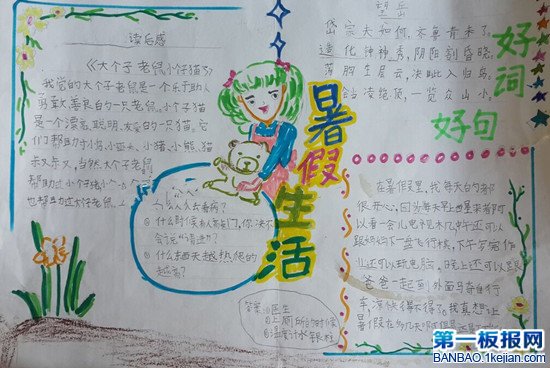 读后感
《大个子老鼠小个子猫5》
我觉的大个子老鼠是一个乐于助人
勇敢善良的一只老鼠。小个子猫
是一个漂亮、聪明、友爱的一只猫。它
们帮助了小鸟、小豆夫、小猪、小熊、猫
叔叔
当然大个子老鼠
帮助过小个子猫小个子
也帮助过大个子老鼠
什么人去看病?
②什么时候有人敲门,你决不
会说“请进”?
③什么东西天越热爬的
越高?
答案:①医生
②上厕所的时候
③温度计水银柱
暑假生活
望岳
岱宗夫如何,齐鲁青未了。
造化钟神秀,阴阳割昏晓。
荡胸生层云,决眦入归鸟。
会当凌绝顶,一览众山小。
好词
好句
在暑假里,我每天白都
很开心,因为每天早上起来都可
以看一会儿电视,中午还可以
跟妈妈下一盘飞行棋,下午写完作
业还可以玩电脑,晚上还可以跟
爸爸一起到外面骑自行
车,凉快得不得了。我真想让
暑假在多几天
第一板报网
BANBAO.1kejian.com